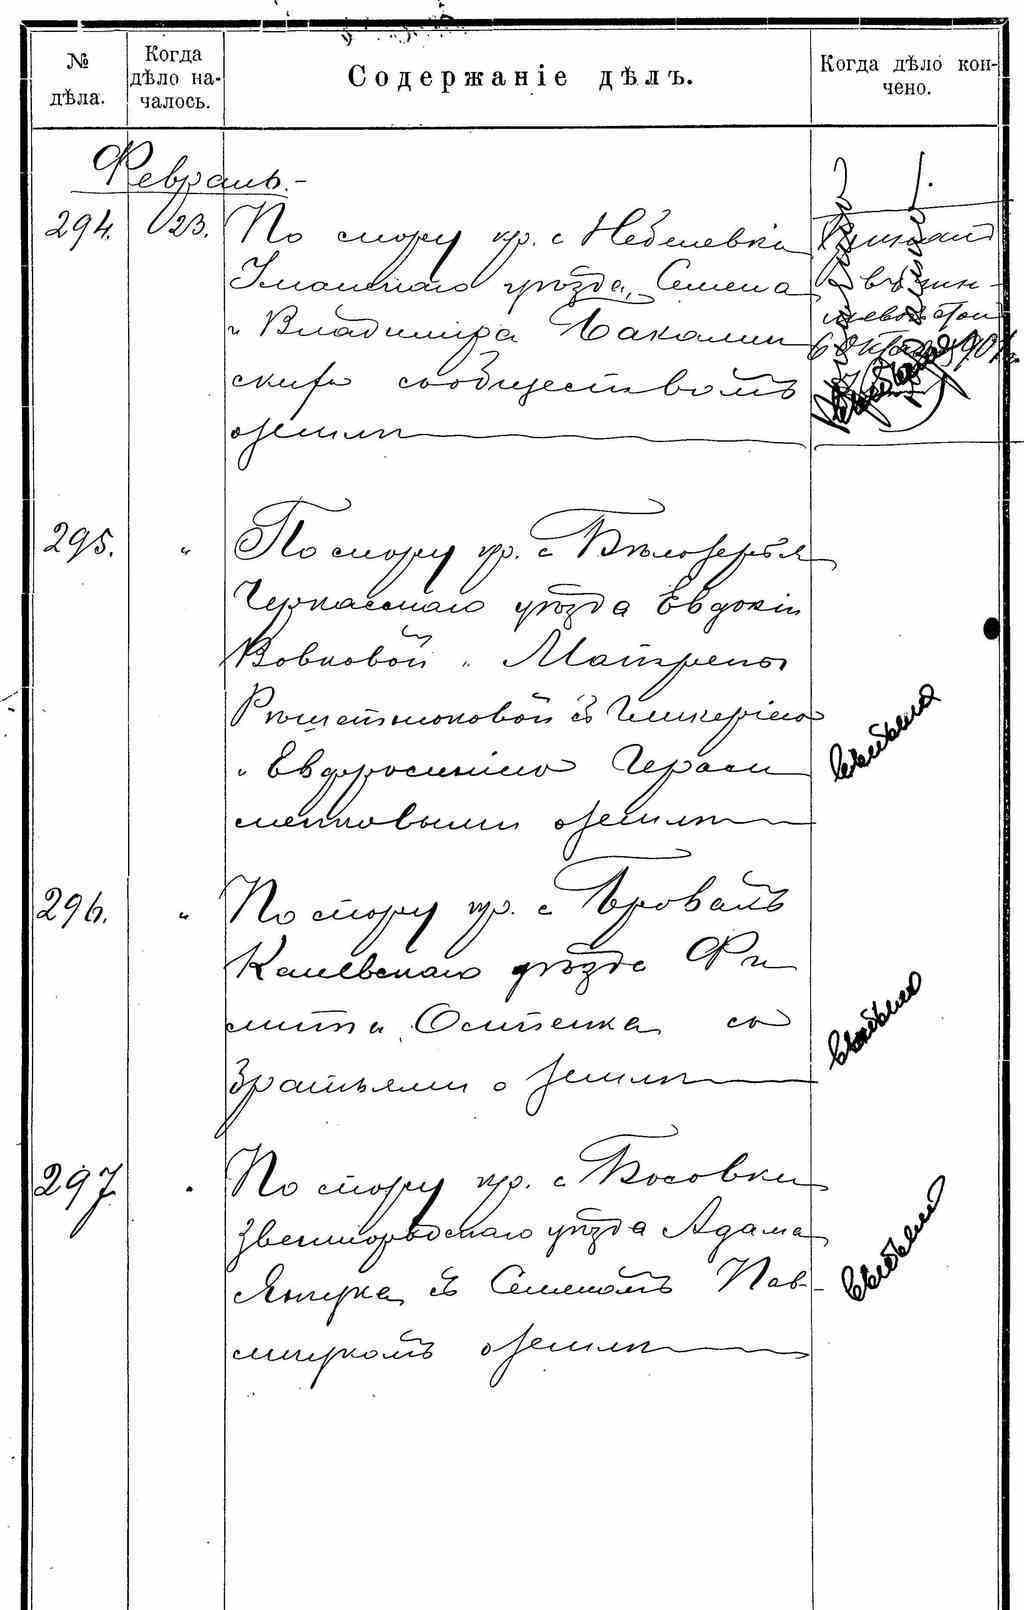 № дѣла.
Когда дѣло на-
чалось.
Содержаніе дѣлъ.
Когда дѣло кон-
чено.
Февраль.-
294. 23. По спору кр. с Небелевки
Уманскаго уѣзда, Семена
и Владимира Бакалин
скихъ съ обществомъ
о землѣ
6 Окт
295. " По спору кр. с Бѣлозерья
Черкасскаго уѣзда Евдокіи
Вовковой и Матрены
Рѣшетняковой съ Гликеріею
и Евфросиніею Гераси
менковыми о землѣ
296. " По спору кр. с Бровахъ
Каневскаго уѣзда Фи
липпа Остпенка со
братьями о землѣ
297. " По спору кр. с Босовки
Звенигородскаго уѣзда Адама
Янчука съ Семеномъ Пав-
личукомъ о землѣ